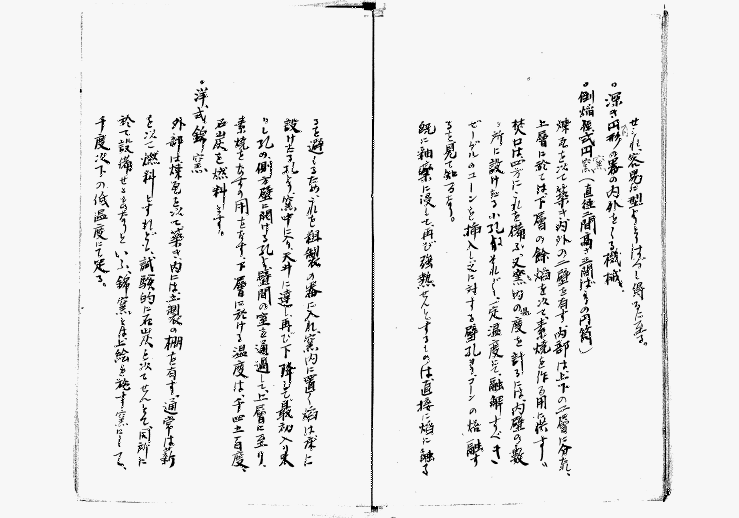 せられ容易に型よりはづし得るに至る。
◦深き円形の器の内外をくる機械、
◦倒焔程式円窯(直径二間高さ二間ばかりの円筒)
煉瓦を以て築き内外の二壁を有す、内部は上下の二層に分れ、
上層に於ては下層の餘焔を以て素焼を作る用に供す。
焚口は四方にこれを備ふ、又窯内の温度を計るには、内壁の数
ヶ所に設けたる小孔よりそれぞれ一定温度にて融解すべき
ゼーゲルのコーンを挿入し之に対する壁孔よりコーンの熔融す
るを見て知るなり。
既に釉薬に浸して再び強熱せんとするものは、直接に焔に触る
るを避くるため、これを粗製の器に入れ窯内に置く、焔は床に
設けたる孔より窯中に入り天井に達し再び下降して最初入り来
りし孔の側方壁に開ける孔より壁間の室を通過して上層に至り、
素焼をなすの用をなす、下層に於ける温度は、千四五百度、
石炭を燃料とす。
◦洋式錦窯
外部は煉瓦を以て築き内には土製の棚を有す、通常は薪
を以て燃料とすれども、試験的に石炭を以てせんとて同所に
於て設備せるものなりといふ、錦窯とは上絵を施す窯にして、
千度以下の低温度にて足る。